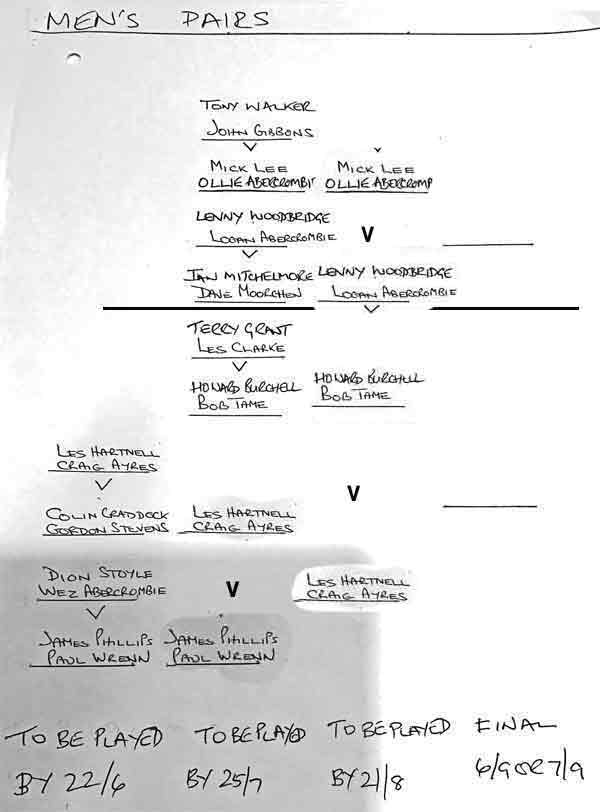 MEN'S PAIRS
TONY WALKER
JOHN GIBBONS
V
MICK LEE MICK LEE
OLLIE ABERCROMBI OLLIE ABERCROMP
LENNY WOODBRIDGE
LOGAN ABERCROMBIE V
V
IAN MITCHELMORE LENNY WOODBRIDGE
DAVE MOORCHEN LOGAN ABERCROMBIE
V
TERRY GRANT
LES CLARKE
V
HOWARD BURCHELL HOWARD BURCHELL
BOB TAME BOB TAME
LES HARTNELL
CRAIG AYRES
V
V
COLIN CRADDOCK LES HARTNELL
GORDON STEVENS CRAIG AYRES
DION STOYLE LES HARTNELL
WEZ ABERCROMBIE V CRAIG AYRES
V
JAMES PHILLIPS JAMES PHILLIPS
PAUL WRENN PAUL WRENN
TO BE PLAYED TO BE PLAYED TO BE PLAYED FINAL
BY 22/6 BY 25/7 BY 21/8 6/9 OR 7/9